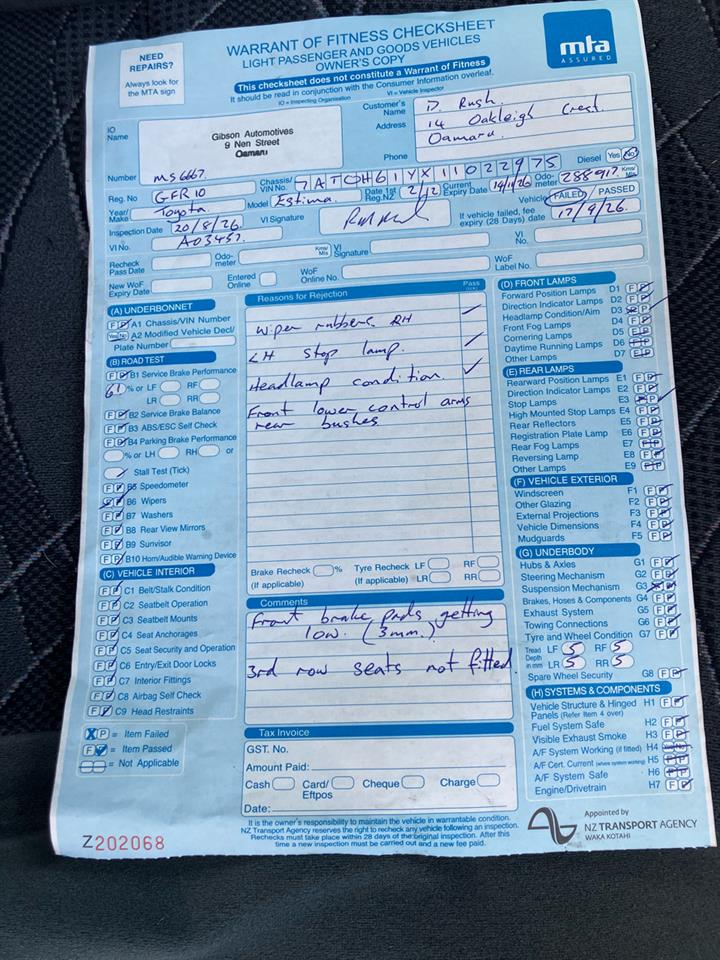 NEED REPAIRS?
Always look for the MTA sign
WARRANT OF FITNESS CHECKSHEET
LIGHT PASSENGER AND GOODS VEHICLES
OWNER'S COPY
This checksheet does not constitute a Warrant of Fitness
It should be read in conjunction with the Consumer Information overleaf.
IO = Inspecting Organisation VI = Vehicle Inspector
mta
ASSURED
IO Name Gibson Automotives
9 Nen Street
Oamaru
Customer's Name D. Rush.
Address 14 Oakleigh Crest.
Oamaru.
Phone
Number MS6667.
Chassis/VIN No. 7ATCH61YX11022975 Diesel Yes No
Reg. No GFR10
Year/Make Toyota Model Estima. Date 1st Reg.NZ 2/12 Current Expiry Date 19/11/26 Odometer 288917 Km/Mls
Vehicle FAILED / PASSED
Inspection Date 20/8/26. VI Signature If vehicle failed, fee expiry (28 Days) date 17/9/26.
VI No. A03457.
Recheck Pass Date Odometer Km/Mls VI Signature VI No.
New WoF Expiry Date Entered Online WoF Online No. WoF Label No.
(A) UNDERBONNET
F P A1 Chassis/VIN Number
Yes No A2 Modified Vehicle Decl/
Plate Number
(B) ROAD TEST
F P B1 Service Brake Performance
61 % or LF RF
LR RR
F P B2 Service Brake Balance
F P B3 ABS/ESC Self Check
F P B4 Parking Brake Performance
% or LH RH or
Stall Test (Tick)
F P B5 Speedometer
F P B6 Wipers
F P B7 Washers
F P B8 Rear View Mirrors
F P B9 Sunvisor
F P B10 Horn/Audible Warning Device
(C) VEHICLE INTERIOR
F P C1 Belt/Stalk Condition
F P C2 Seatbelt Operation
F P C3 Seatbelt Mounts
F P C4 Seat Anchorages
F P C5 Seat Security and Operation
F P C6 Entry/Exit Door Locks
F P C7 Interior Fittings
F P C8 Airbag Self Check
F P C9 Head Restraints
X P = Item Failed
F ✓ = Item Passed
= Not Applicable
Z202068
Reasons for Rejection Pass
Wiper rubbers RH
LH stop lamp.
Headlamp condition.
Front lower control arms
rear bushes
Brake Recheck % Tyre Recheck LF RF
(If applicable) (If applicable) LR RR
Comments
Front brake pads getting
low. (3mm.)
3rd row seats not fitted.
Tax Invoice
GST. No.
Amount Paid:
Cash Card/Eftpos Cheque Charge
Date:
It is the owner's responsibility to maintain the vehicle in warrantable condition.
NZ Transport Agency reserves the right to recheck any vehicle following an inspection.
Rechecks must take place within 28 days of the original inspection. After this
time a new inspection must be carried out and a new fee paid.
(D) FRONT LAMPS
Forward Position Lamps D1 F P
Direction Indicator Lamps D2 F P
Headlamp Condition/Aim D3 F P
Front Fog Lamps D4 F P
Cornering Lamps D5 F P
Daytime Running Lamps D6 F P
Other Lamps D7 F P
(E) REAR LAMPS
Rearward Position Lamps E1 F P
Direction Indicator Lamps E2 F P
Stop Lamps E3 F P
High Mounted Stop Lamps E4 F P
Rear Reflectors E5 F P
Registration Plate Lamp E6 F P
Rear Fog Lamps E7 F P
Reversing Lamp E8 F P
Other Lamps E9 F P
(F) VEHICLE EXTERIOR
Windscreen F1 F P
Other Glazing F2 F P
External Projections F3 F P
Vehicle Dimensions F4 F P
Mudguards F5 F P
(G) UNDERBODY
Hubs & Axles G1 F P
Steering Mechanism G2 F P
Suspension Mechanism G3 F P
Brakes, Hoses & Components G4 F P
Exhaust System G5 F P
Towing Connections G6 F P
Tyre and Wheel Condition G7 F P
Tread Depth in mm LF 5 RF 5
LR 5 RR 5
Spare Wheel Security G8 F P
(H) SYSTEMS & COMPONENTS
Vehicle Structure & Hinged H1 F P
Panels (Refer Item 4 over)
Fuel System Safe H2 F P
Visible Exhaust Smoke H3 F P
A/F System Working (if fitted) H4 F P
A/F Cert. Current (where system working) H5 F P
A/F System Safe H6 F P
Engine/Drivetrain H7 F P
Appointed by
NZ TRANSPORT AGENCY
WAKA KOTAHI